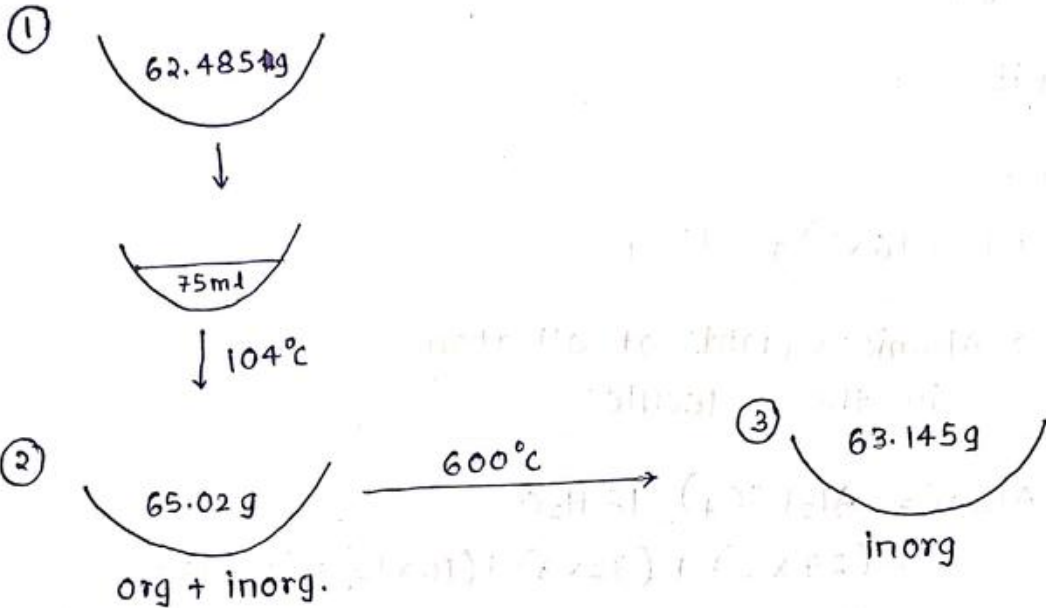 ①
62.485g
75ml
104°C
②
65.02g
org + inorg.
600°C
③
63.145g
inorg